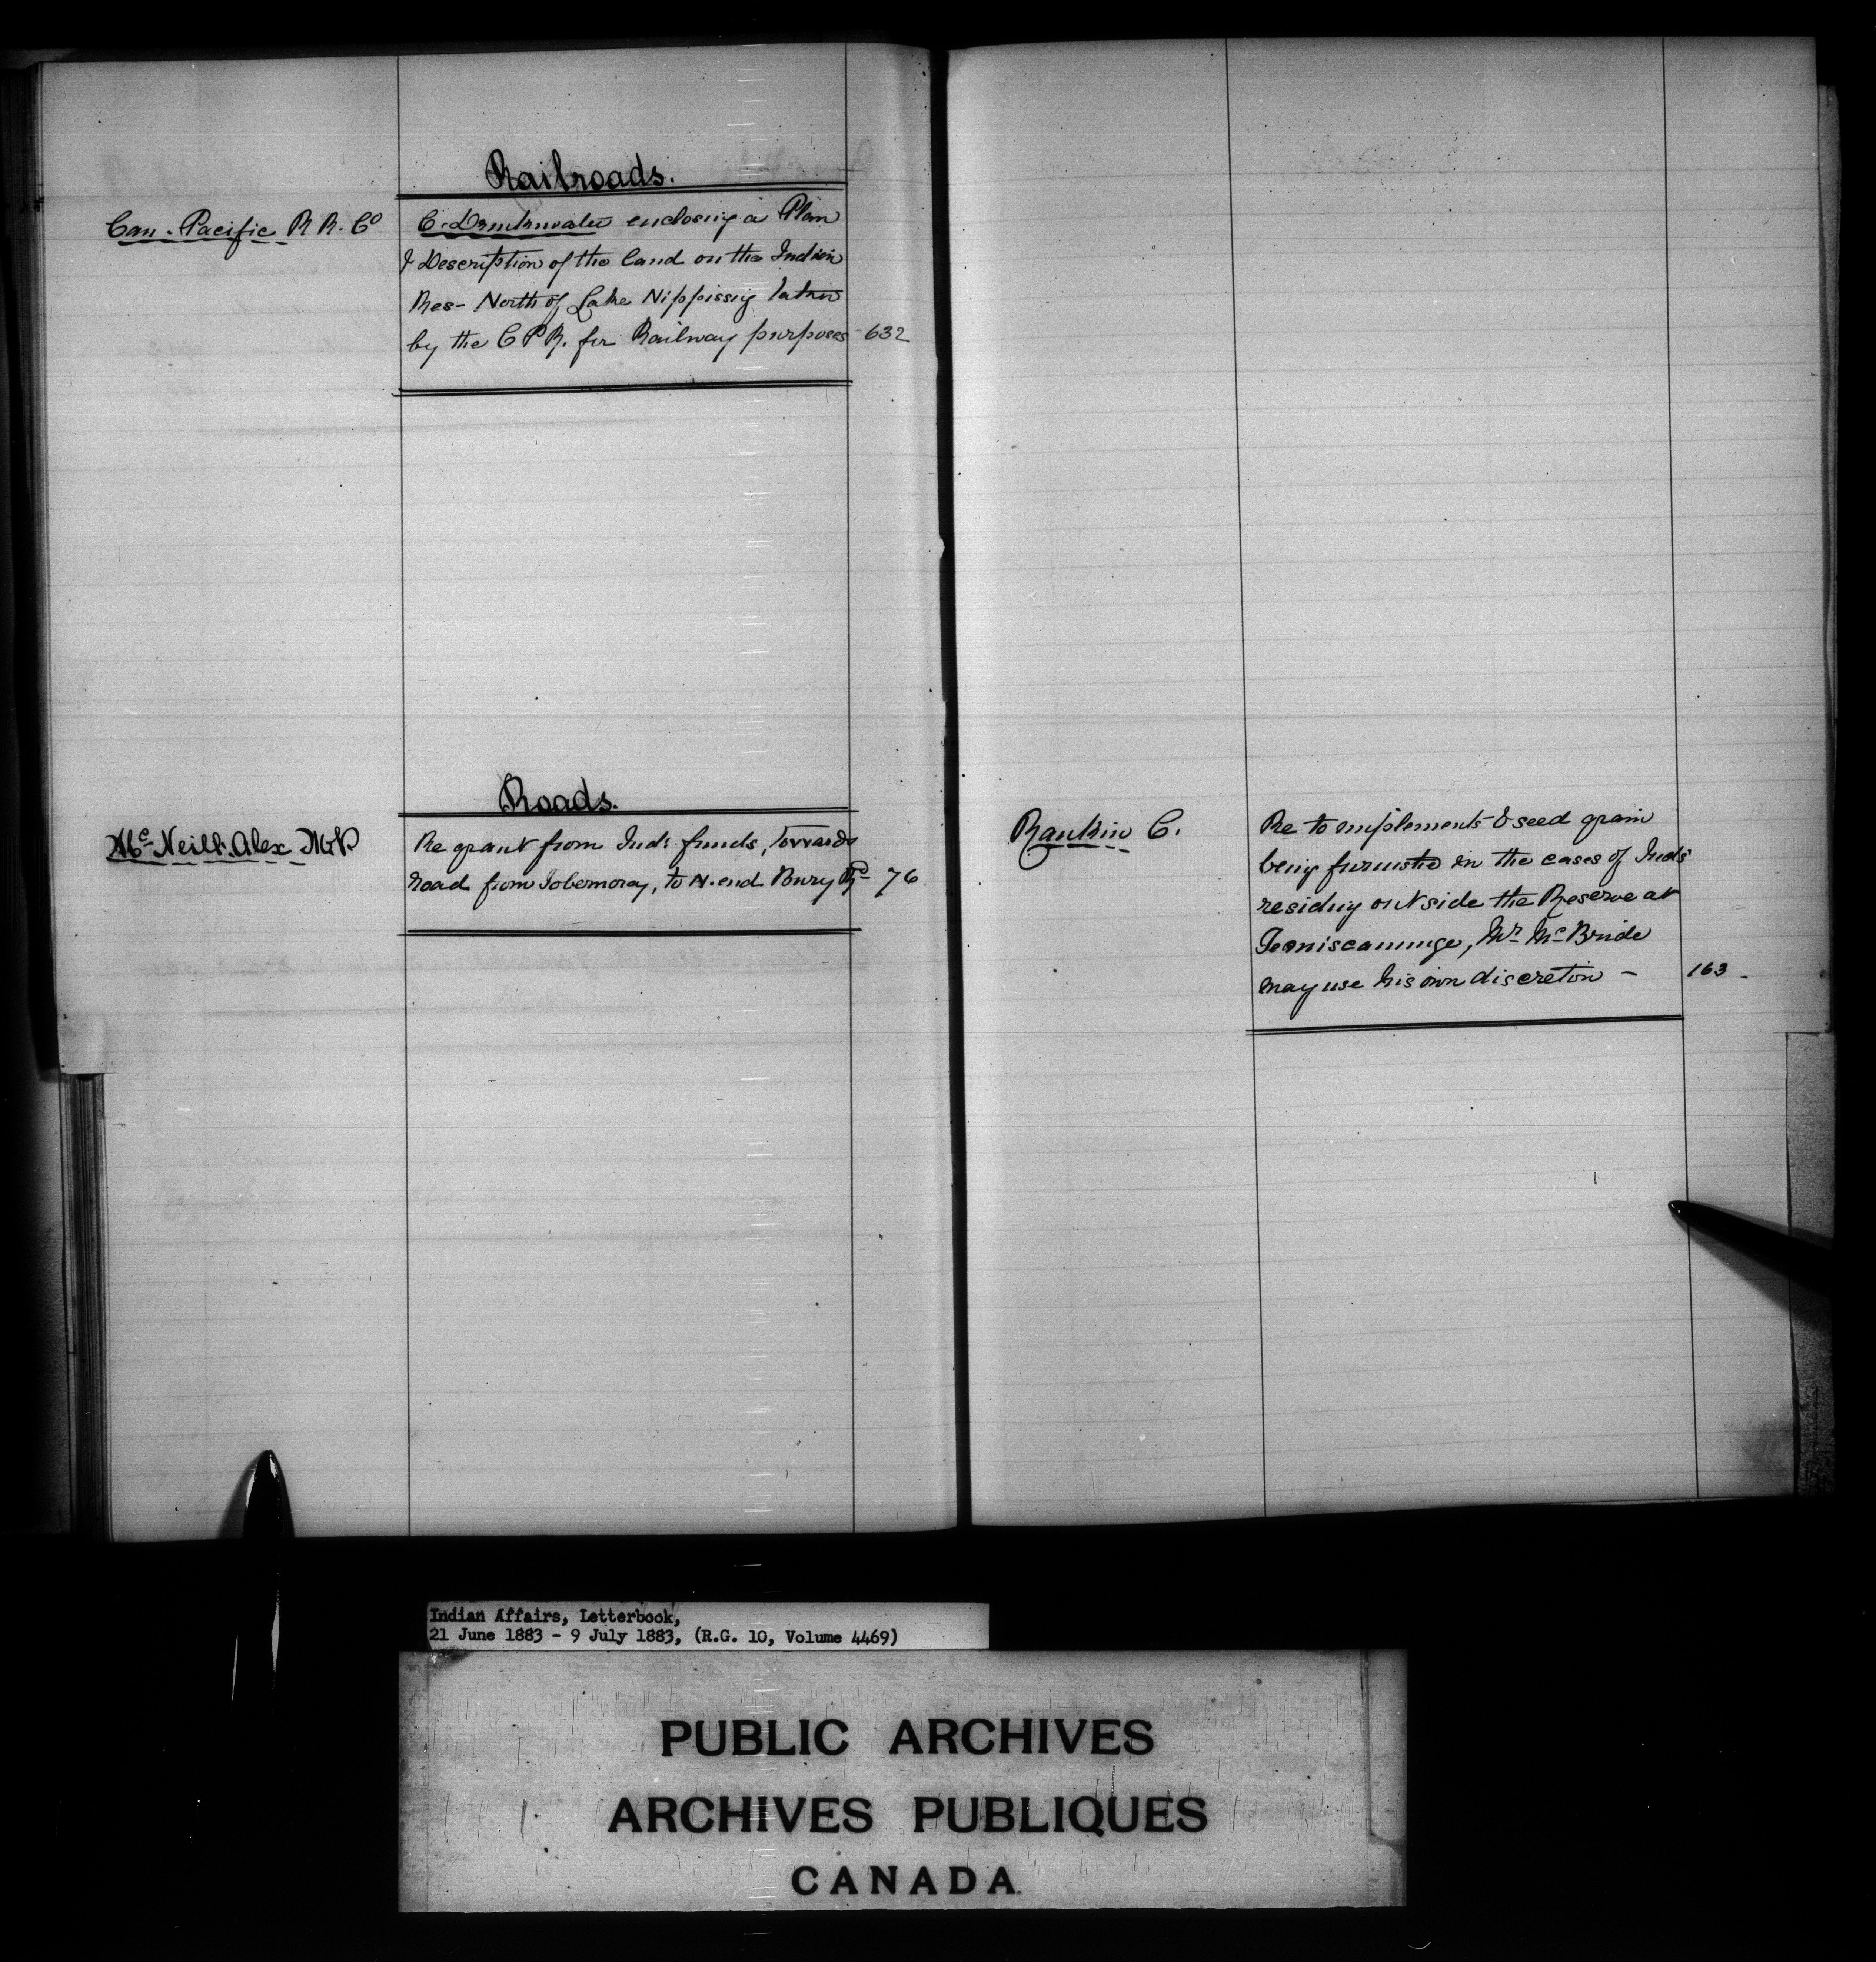 Railroads.
Can. Pacific R R. Co
C. Drinkwater enclosing a Plan
& Description of the land on the Indian
Res- North of Lake Nippissing taken
by the C P R. for Railway purposes 632
Roads.
Mc Neill. Alex M.P.
Re grant from Inds funds, towards
road from Tobermoray, to N. end Bury Rd 76
Rankin C.
Re to implements & seed grain
being furnished in the cases of Inds
residing outside the Reserve at
Temiscaminge, Mr. McBride
may use his own discretion - 163 -
Indian Affairs, Letterbook,
21 June 1883 - 9 July 1883, (R.G. 10, Volume 4469)
PUBLIC ARCHIVES
ARCHIVES PUBLIQUES
CANADA